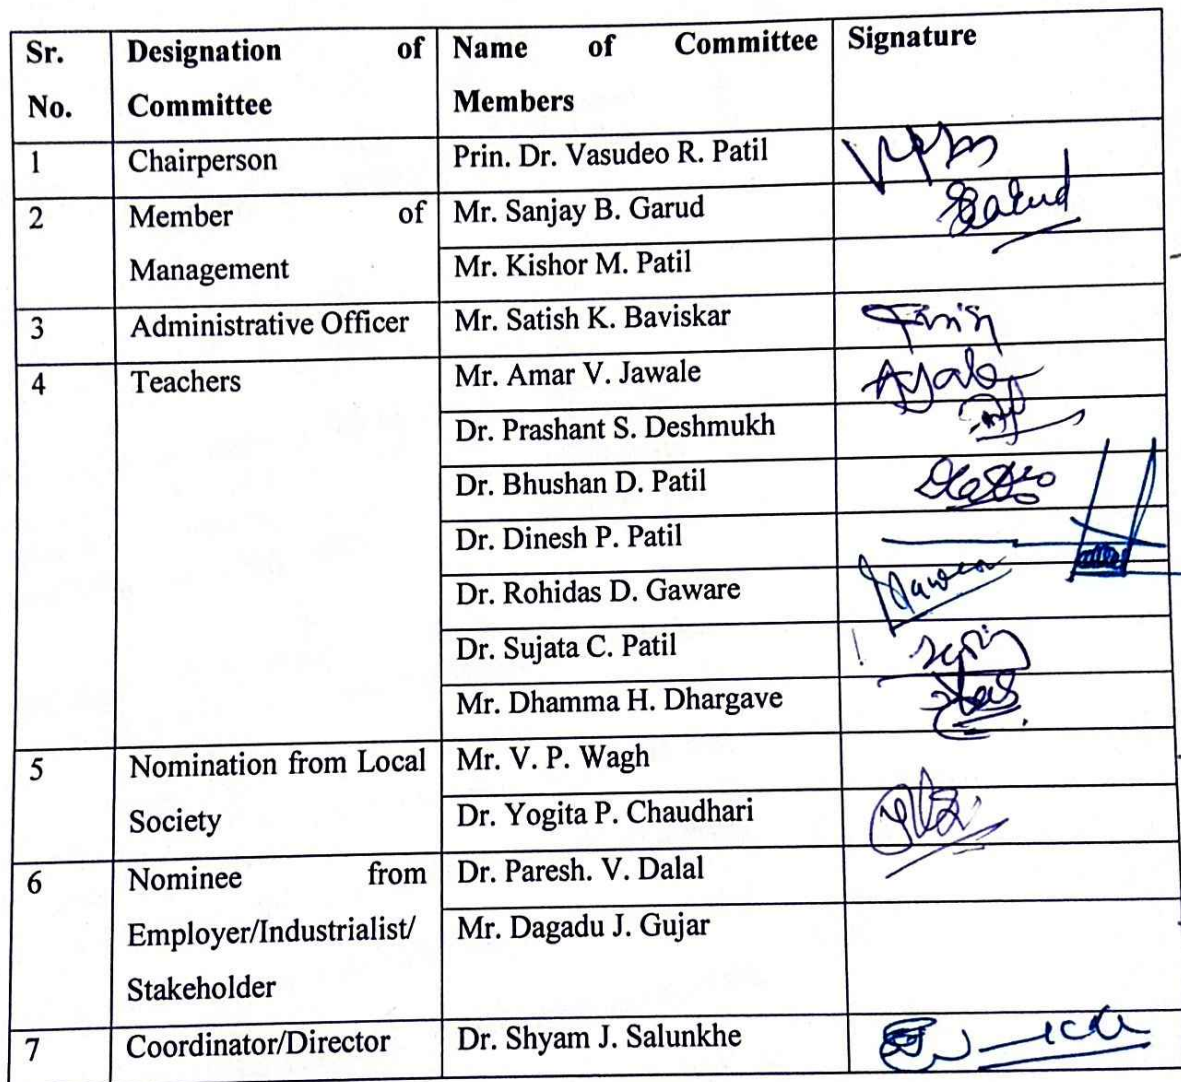 Sr. No. Designation of Committee Name of Committee Members Signature
1 Chairperson Prin. Dr. Vasudeo R. Patil
2 Member of Management Mr. Sanjay B. Garud Garud
Mr. Kishor M. Patil
3 Administrative Officer Mr. Satish K. Baviskar
4 Teachers Mr. Amar V. Jawale
Dr. Prashant S. Deshmukh
Dr. Bhushan D. Patil
Dr. Dinesh P. Patil
Dr. Rohidas D. Gaware
Dr. Sujata C. Patil
Mr. Dhamma H. Dhargave
5 Nomination from Local Society Mr. V. P. Wagh
Dr. Yogita P. Chaudhari
6 Nominee from Employer/Industrialist/ Stakeholder Dr. Paresh. V. Dalal
Mr. Dagadu J. Gujar
7 Coordinator/Director Dr. Shyam J. Salunkhe